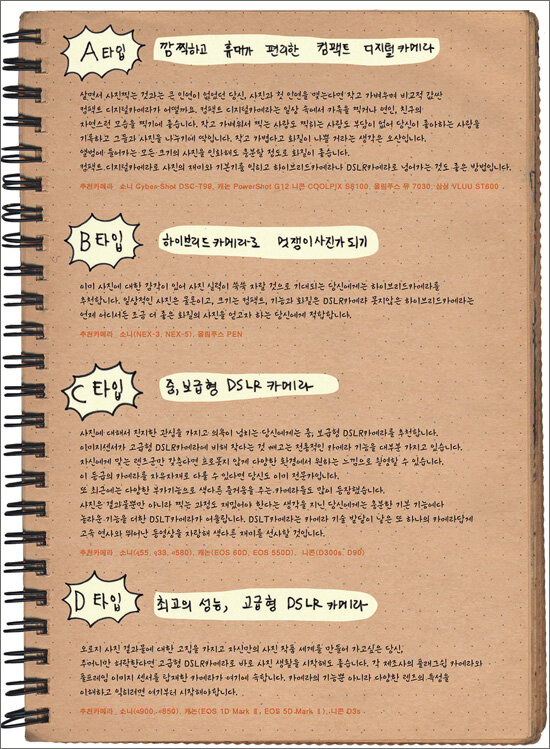 A타입
깜찍하고 휴대가 편리한 컴팩트 디지털카메라
살면서 사진찍는 것과는 큰 인연이 없었던 당신, 사진과 첫 인연을 맺는다면 작고 가벼우며 비교적 값싼
컴팩트 디지털카메라가 어떨까요. 컴팩트 디지털카메라는 일상 속에서 가족을 찍거나 연인, 친구의
자연스런 모습을 찍기에 좋습니다. 작고 가벼워서 찍는 사람도 찍히는 사람도 부담이 없어 당신이 좋아하는 사람을
기록하고 그들과 사진을 나누기에 딱입니다. 작고 가볍다고 화질이 나쁠 거라는 생각은 오산입니다.
앨범에 들어가는 모든 크기의 사진을 인화해도 충분할 정도로 화질이 좋습니다.
컴팩트 디지털카메라로 사진의 재미와 기본기를 익히고 하이브리드카메라나 DSLR카메라로 넘어가는 것도 좋은 방법입니다.
추천카메라_ 소니 Cyber-Shot DSC-T99, 캐논 PowerShot G12 니콘 COOLPIX S8100, 올림푸스 뮤 7030, 삼성 VLUU ST600
B타입
하이브리드 카메라로 멋쟁이 사진가 되기
이미 사진에 대한 감각이 있어 사진 실력이 쑥쑥 자랄 것으로 기대되는 당신에게는 하이브리드카메라를
추천합니다. 일상적인 사진은 물론이고, 크기는 컴팩트, 기능과 화질은 DSLR카메라 못지않은 하이브리드카메라는
언제 어디서든 조금 더 좋은 화질의 사진을 얻고자 하는 당신에게 적합합니다.
추천카메라_ 소니(NEX-3, NEX-5), 올림푸스 PEN
C타입
중, 보급형 DSLR 카메라
사진에 대해서 진지한 관심을 가지고 의욕이 넘치는 당신에게는 중, 보급형 DSLR카메라를 추천합니다.
이미지센서가 고급형 DSLR카메라에 비해 작다는 것 빼고는 전통적인 카메라 기능을 대부분 가지고 있습니다.
자신에게 맞는 렌즈군만 갖춘다면 프로못지 않게 다양한 환경에서 원하는 느낌으로 촬영할 수 있습니다.
이 등급의 카메라를 자유자재로 다룰 수 있다면 당신도 이미 전문가입니다.
또 최근에는 다양한 부가기능으로 색다른 즐거움을 주는 카메라들도 많이 등장했습니다.
사진은 결과물뿐만 아니라 찍는 과정도 재밌어야 한다는 생각을 지닌 당신에게는 충분한 기본 기능에다
놀라운 기능을 더한 DSLT카메라가 어울립니다. DSLT카메라는 카메라 기술 발달이 낳은 또 하나의 카메라답게
고속 연사와 뛰어난 동영상을 자랑해 색다른 재미를 선사할 것입니다.
추천카메라_ 소니(α55, α33, α580), 캐논(EOS 60D, EOS 550D), 니콘(D300s, D90)
D타입
최고의 성능, 고급형 DSLR 카메라
오로지 사진 결과물에 대한 고집을 가지고 자신만의 사진 작품 세계를 만들어 가고싶은 당신,
주머니만 허락한다면 고급형 DSLR카메라로 바로 사진 생활을 시작해도 좋습니다. 각 제조사의 플래그쉽 카메라와
풀프레임 이미지 센서를 탑재한 카메라가 여기에 속합니다. 카메라의 기능뿐 아니라 다양한 렌즈의 특성을
이해하고 익히려면 여기부터 시작해야합니다.
추천카메라_ 소니(α900, α850), 캐논(EOS 1D Mark Ⅲ, EOS 5D Mark Ⅱ), 니콘 D3s